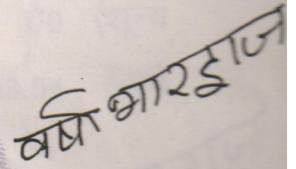 वर्षा भारद्वाज